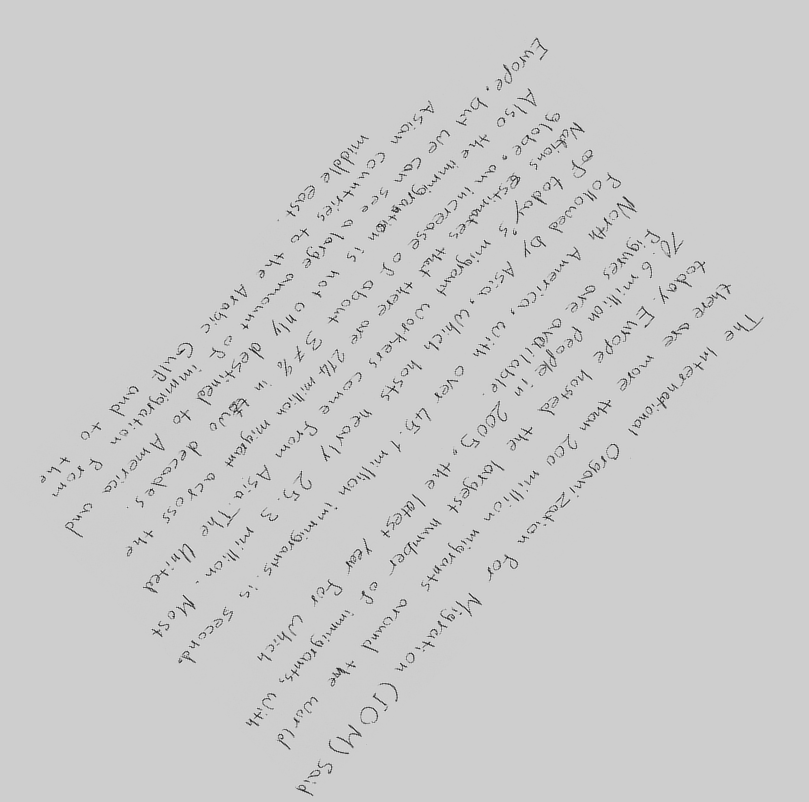 The International Organization for Migration (IOM) said
there are more than 200 million migrants around the world
today. Europe hosted the largest number of immigrants, with
70.6 million people in 2005, the latest year for which
figures are available.
North America, with over 45.1 million immigrants. is second.
followed by Asia, which hosts nearly 25.3 million. Most
of today's migrant workers come from Asia. The United
Nations estimates that there are 214 million migrant across the
globe, an increase of about 37% in two decades.
Also the immigration is not only destined to America and
Europe. but we can see a large amount of immigration from
Asian countries to the Arabic Gulf and to the
middle east.